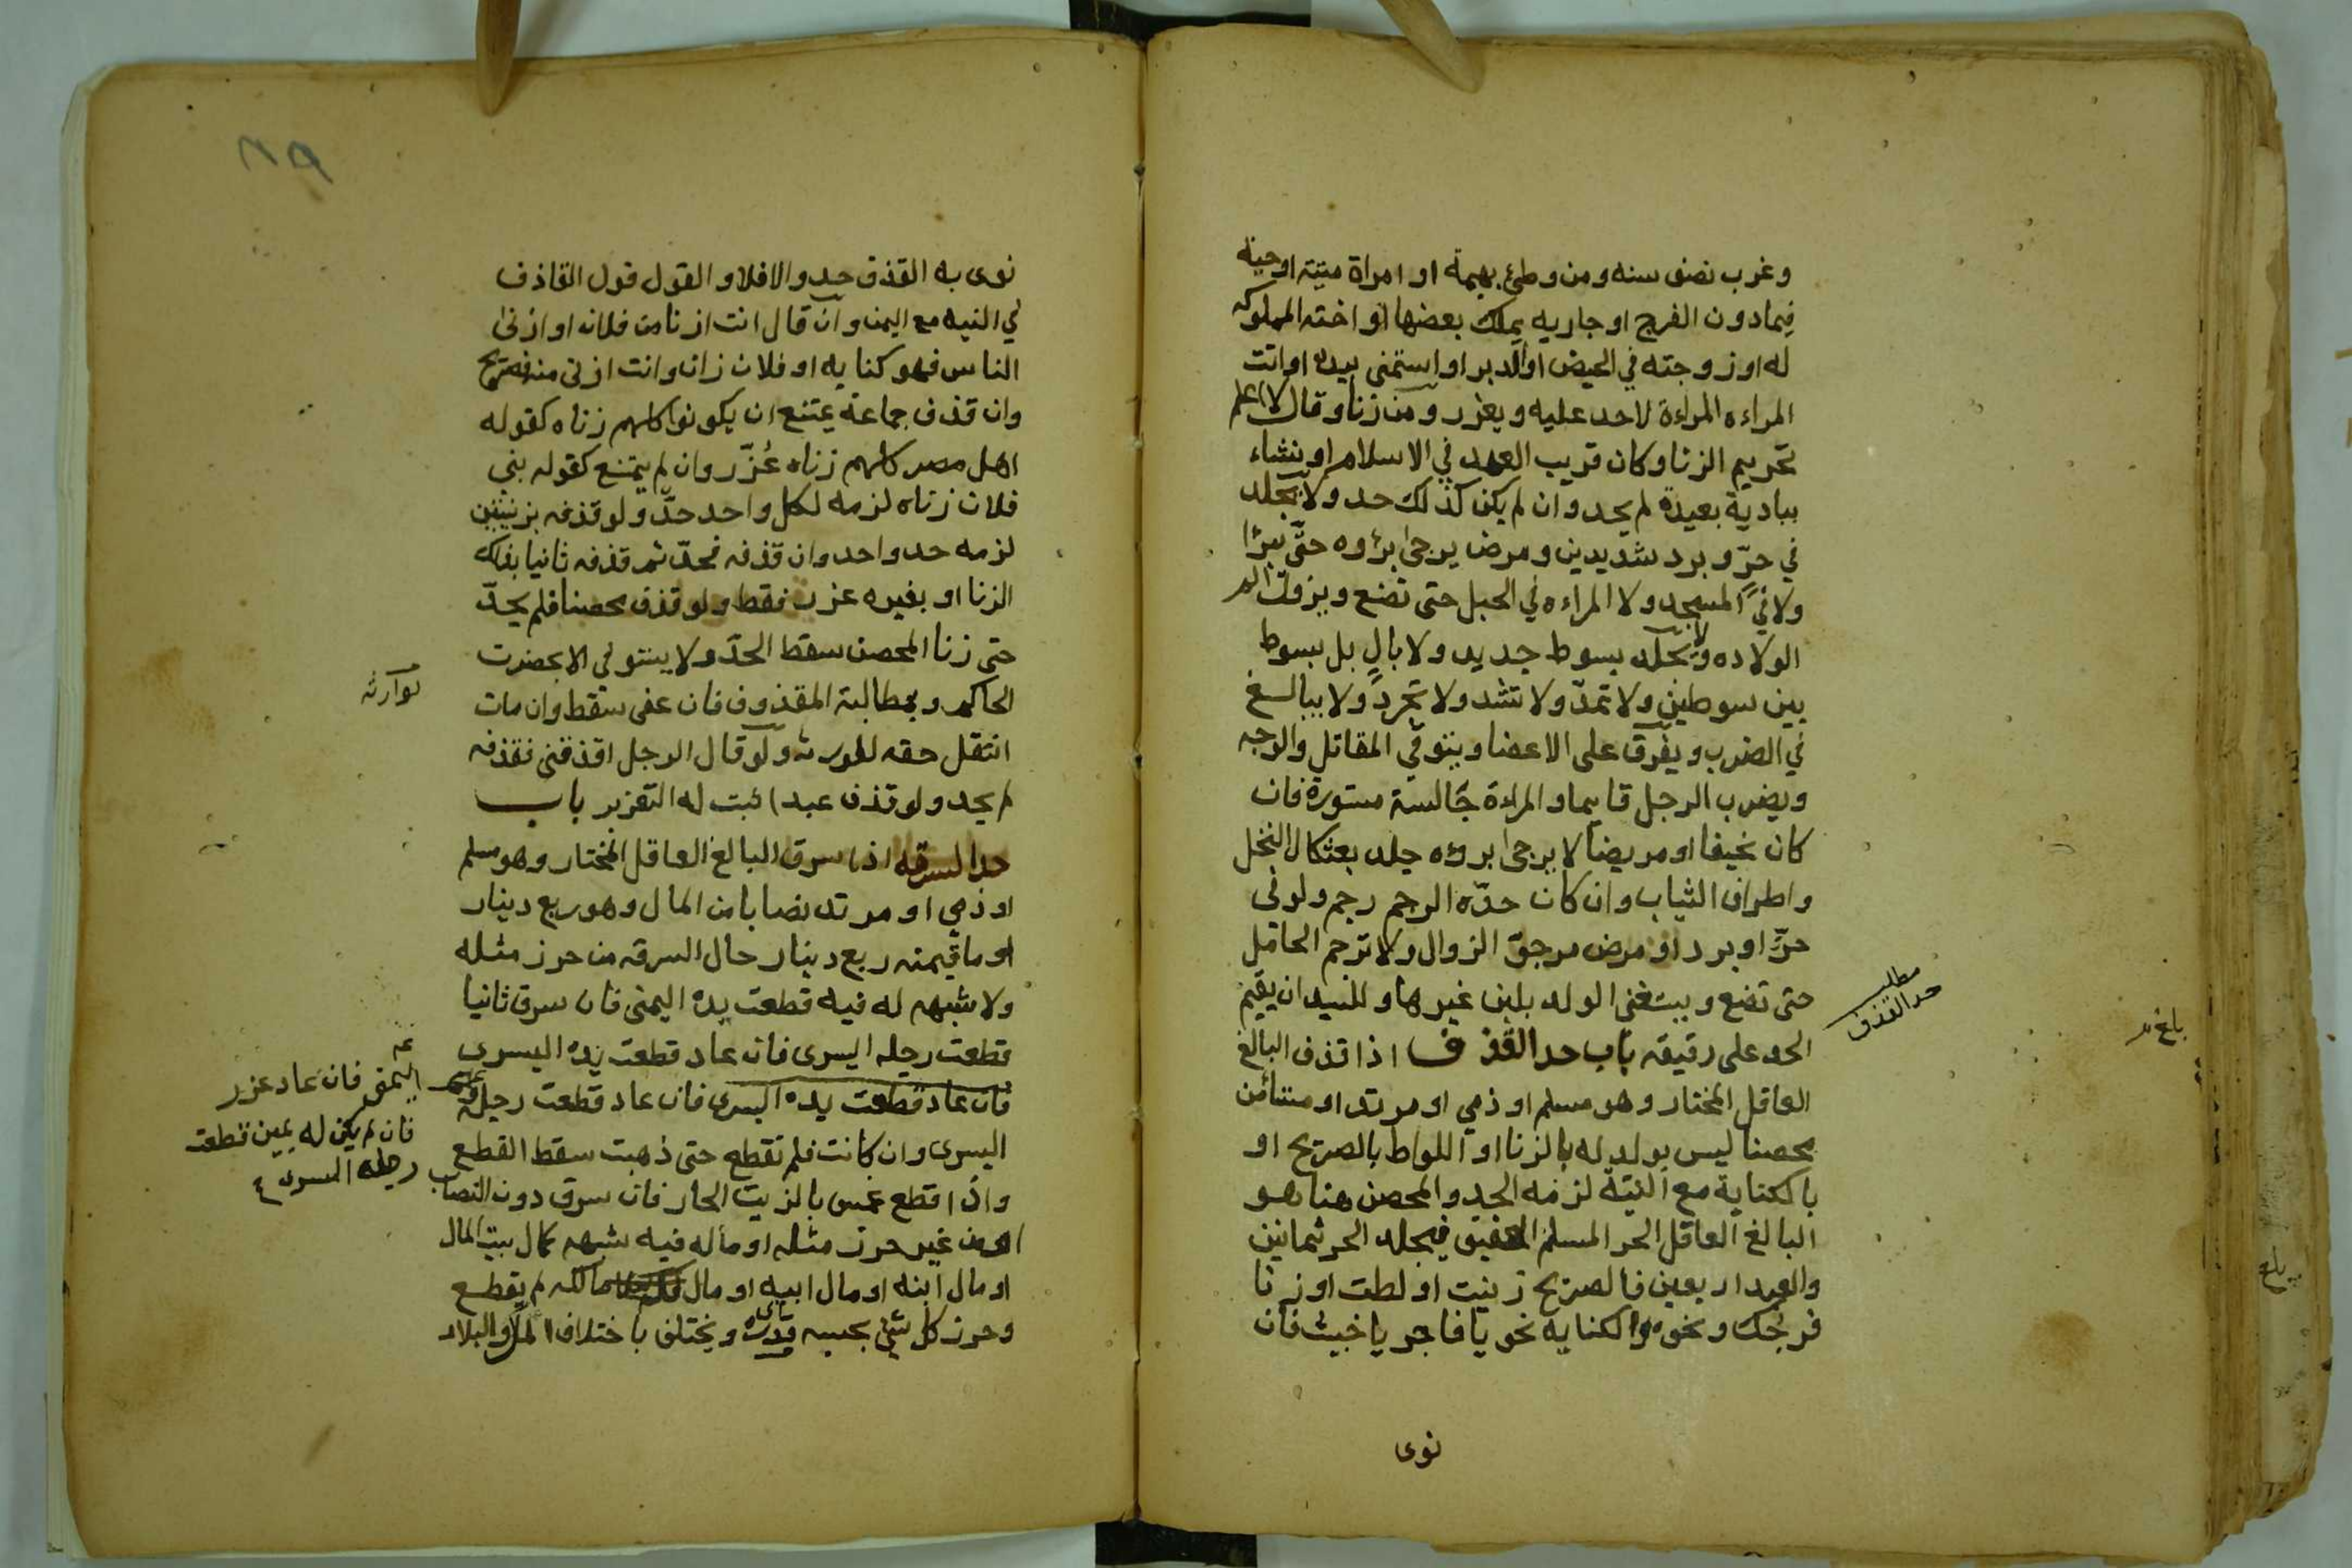 وغرب نصف سنه ومن وطئ بهيمة او امراة ميتة او حية
فيمادون الفرج او جاريه يملك بعضها او اخته المملوكه
له او زوجته في الحيض او الدبر او استمنى بيده او اتت
المراءه المراءة لاحد عليه ويعزر ومن زنا وقال لا اعلم
تحريم الزنا وكان قريب العهد في الاسلام او نشاء
ببادية بعيدة لم يحد وان لم يكن كذلك حد ولا يجلد
في حرّ وبرد شديدين ومرض يرجى برؤه حتّى يبرا
ولا في المسجد ولا المراءه في الحبل حتى تضع ويزول الم
الولاده ولا يجلد بسوط جديد ولا بالٍ بل بسوط
بين سوطين ولا تمدّ ولا تشد ولا تجرد ولا يبالغ
في الضرب ويفرق على الاعضا ويتوقي المقاتل والوجه
ويضرب الرجل قايما والمراءة جالسة مستورة فان
كان نحيفا او مريضا لا يرجى برؤه جلد بعثكال النخل
واطراف الثياب وان كان حدّه الرجم رجم ولو في
حرّ او برد او مرض مرجوّ الزوال ولا ترجم الحامل
حتى تضع ويستغنى الولد بلبن غيرها وللسيد ان يقيم
الحد على رقيقه باب حد القذف اذا قذف البالغ
العاقل المختار وهو مسلم او ذمي او مرتد او مستأمن
محصنا ليس بولد له بالزنا او اللواط بالصريح او
بالكناية مع النيّة لزمه الحد والمحصن هنا هو
البالغ العاقل الحر المسلم العفيف فيجلد الحر ثمانين
والعبد اربعين فالصريح زنيت او لطت او زنا
فرجك ونحوه والكنايه نحو يا فاجر يا خبيث فان
نوى
مطلب
حد القذف
بلغ
نوى به القذف حد والا فلا والقول قول القاذف
في النيه مع اليمن وان قال انت ازنا من فلان او ازنى
الناس فهو كنايه او فلان زان وانت ازنى منه فصريح
وان قذف جماعة يمتنع ان يكونوا كلهم زناه كقوله
اهل مصر كلهم زناه عُزّر وان لم يمتنع كقوله بنى
فلان زناه لزمه لكل واحد حدّ ولو قذفه بزنيتين
لزمه حد واحد وان قذفه فحدّ ثم قذفه ثانيا بذلك
الزنا او بغيره عزر فقط ولو قذف محصنا فلم يحدّ
حتى زنا المحصن سقط الحدّ ولا يستوفى الا بحضرت
الحاكم وبمطالبة المقذوف فان عفى سقط وان مات
انتقل حقه للورثه ولو قال الرجل اقذفنى فقذفه
لم يحد ولو قذف عبدا ثبت له التعزير باب
حد السرقه اذا سرق البالغ العاقل المختار وهو مسلم
او ذمي او مرتد نصابا من المال وهو ربع دينار
او ما قيمته ربع دينار حال السرقه من حرز مثله
ولا شبهه له فيه قطعت يده اليمنى فان سرق ثانيا
قطعت رجله اليسرى فان عاد قطعت يده اليسرى
فان عاد قطعت يده اليسرى فان عاد قطعت رجله
اليسرى وان كانت فلم تقطع حتى ذهبت سقط القطع
واذا قطع غمس بالزيت الحار فان سرق دون النصاب
او من غير حرز مثله او ماله فيه شبهه كمال بيت المال
او مال ابنه او مال ابيه او مال مالكه لم يقطع
وحرز كل شئ بحسبه ويختلف باختلاف المال والبلاد
لوارثه
اليمنى فان عاد عزر
فان لم يكن له يمين قطعت
رجله اليسرى